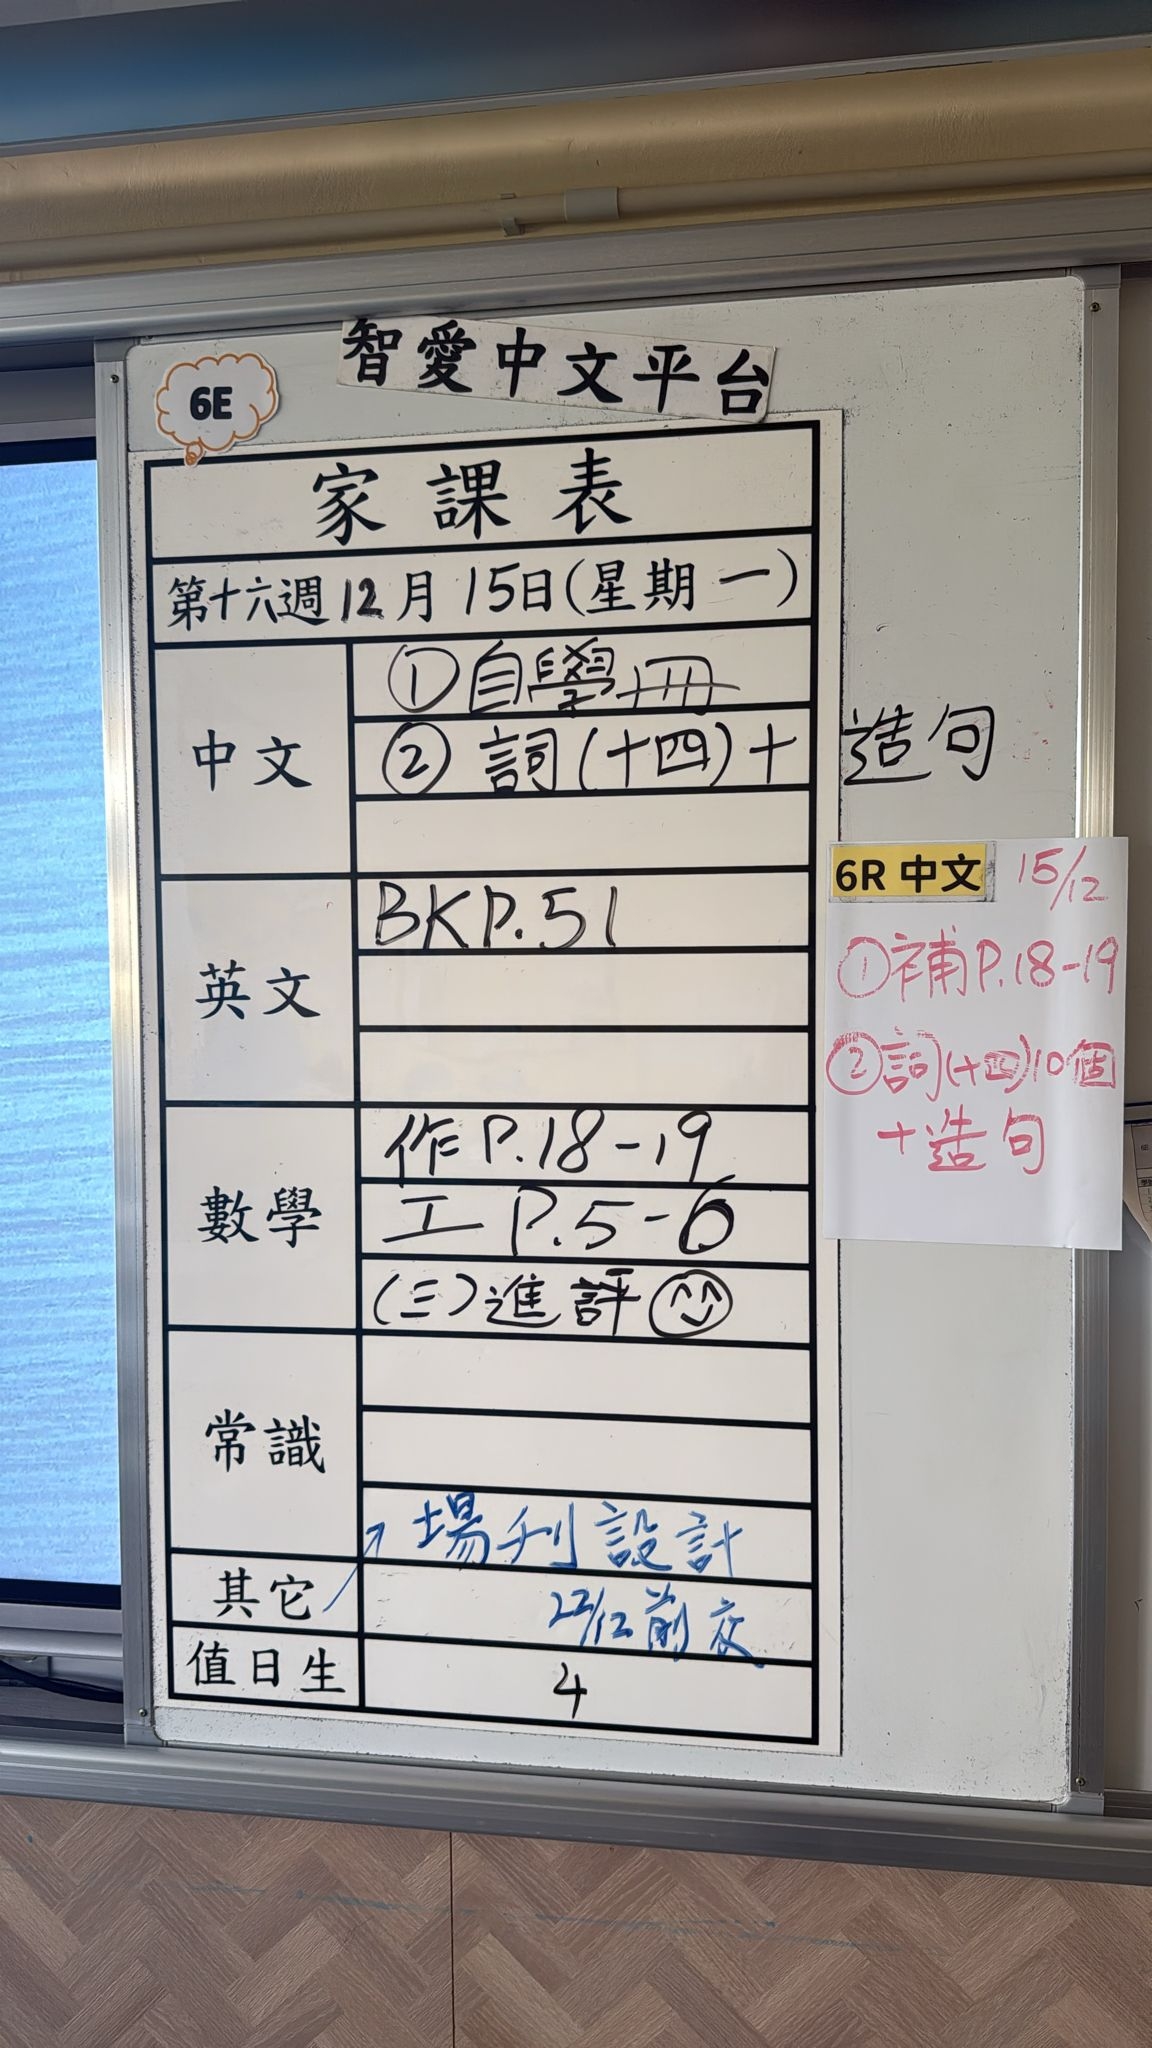 智愛中文平台
6E
家課表
第十六週12月15日(星期一)
中文
①自學冊
②詞(十四)+造句
英文
BKP.51
數學
作P.18-19
工P.5-6
(三)進評
常識
場刊設計
其它
22/12前交
值日生
4
6R 中文 15/12
①補P.18-19
②詞(十四)10個
+造句